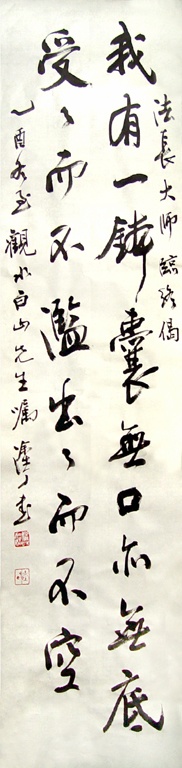 法長大師臨終偈
我有一鉢囊無口亦無底
受々而不濫出々而不空
乙酉冬至觀水白山先生囑濟